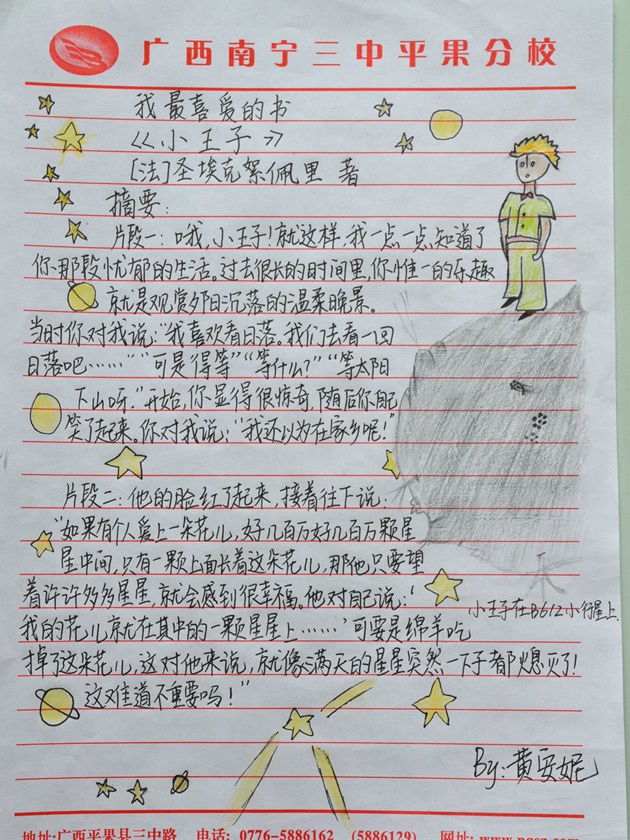 广西南宁三中平果分校
我最喜爱的书
《小王子》
[法]圣埃克絮佩里 著
摘要:
片段一:哦,小王子!就这样,我一点一点知道了
你那段忧郁的生活。过去很长的时间里,你惟一的乐趣
就是观赏夕日沉落的温柔晚景。
当时你对我说:“我喜欢看日落。我们去看一回
日落吧……”“可是得等”“等什么?”“等太阳
下山呀。”开始,你显得很惊奇,随后你自己
笑了起来。你对我说:“我还以为在家乡呢!”
片段二:他的脸红了起来,接着往下说:
“如果有个人爱上一朵花儿,好几百万好几百万颗星
星中间,只有一颗上面长着这朵花儿,那他只要望
着许许多多星星,就会感到很幸福。他对自己说:‘
小王子在B612小行星上.
我的花儿就在其中的一颗星星上……’可要是绵羊吃
掉了这朵花儿,这对他来说,就像满天的星星突然一下子都熄灭了!
这难道不重要吗!”
By:黄安妮
地址:广西平果县三中路 电话:0776-5886162 (5886129) 网址: